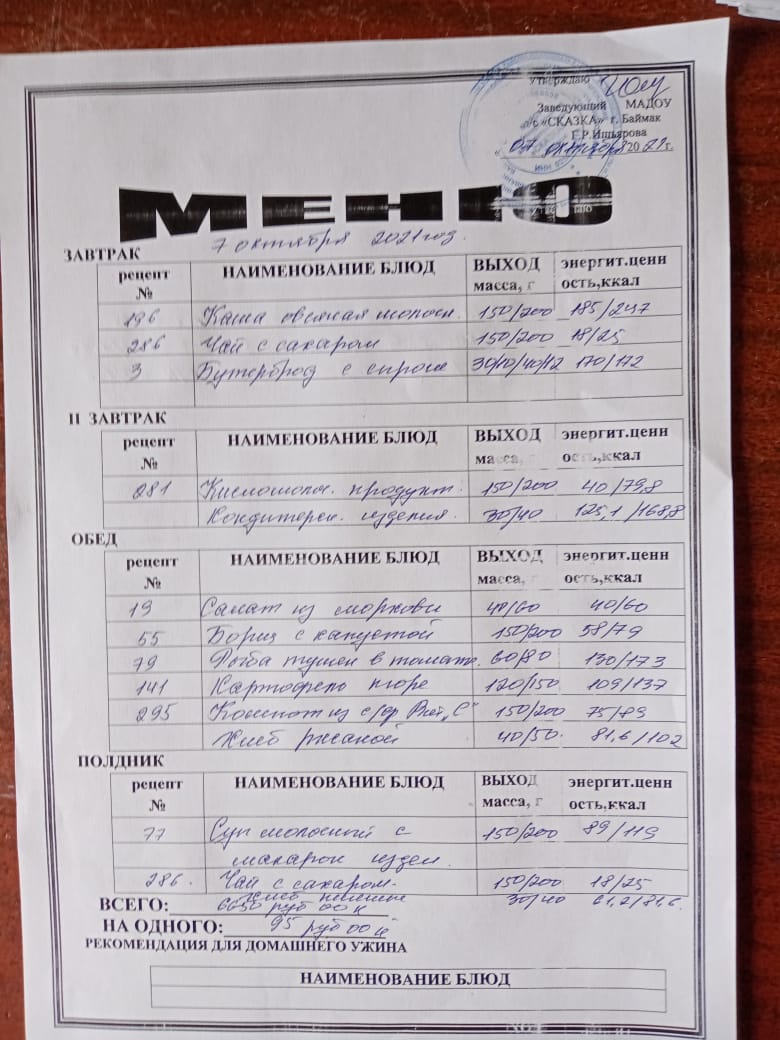 Утверждаю
Заведующий МАДОУ
д/с «СКАЗКА» г. Баймак
Г.Р.Ишьярова
« 07 октября 2021г.
МЕНЮ
7 октября 2021год.
ЗАВТРАК
рецепт № НАИМЕНОВАНИЕ БЛЮД ВЫХОД масса, г энергит.ценн ость,ккал
196 Каша овсяная молочн. 150/200 185/247
286 Чай с сахаром 150/200 18/25
3 Бутерброд с сыром 30/10/40/12 170/172
II ЗАВТРАК
рецепт № НАИМЕНОВАНИЕ БЛЮД ВЫХОД масса, г энергит.ценн ость,ккал
281 Кисломолоч. продукт. 150/200 40/79,8
Кондитерск. изделия. 30/40 125,1/168,8
ОБЕД
рецепт № НАИМЕНОВАНИЕ БЛЮД ВЫХОД масса, г энергит.ценн ость,ккал
19 Салат из моркови 40/60 40/60
55 Борщ с капустой 150/200 58/79
79 Рыба тушен в томате. 60/80 130/173
141 Картофель пюре 120/150 109/137
295 Компот из с/фр Вит „С" 150/200 75/89
Хлеб ржаной 40/50. 81,6/102
ПОЛДНИК
рецепт № НАИМЕНОВАНИЕ БЛЮД ВЫХОД масса, г энергит.ценн ость,ккал
77 Суп молочный с 150/200 89/119
макарон издел.
286. Чай с сахаром. 150/200 18/25
Хлеб пшенич 30/40 61,2/81,6.
ВСЕГО: 6650 руб 00 к
НА ОДНОГО: 95 руб 00 к
РЕКОМЕНДАЦИЯ ДЛЯ ДОМАШНЕГО УЖИНА
НАИМЕНОВАНИЕ БЛЮД